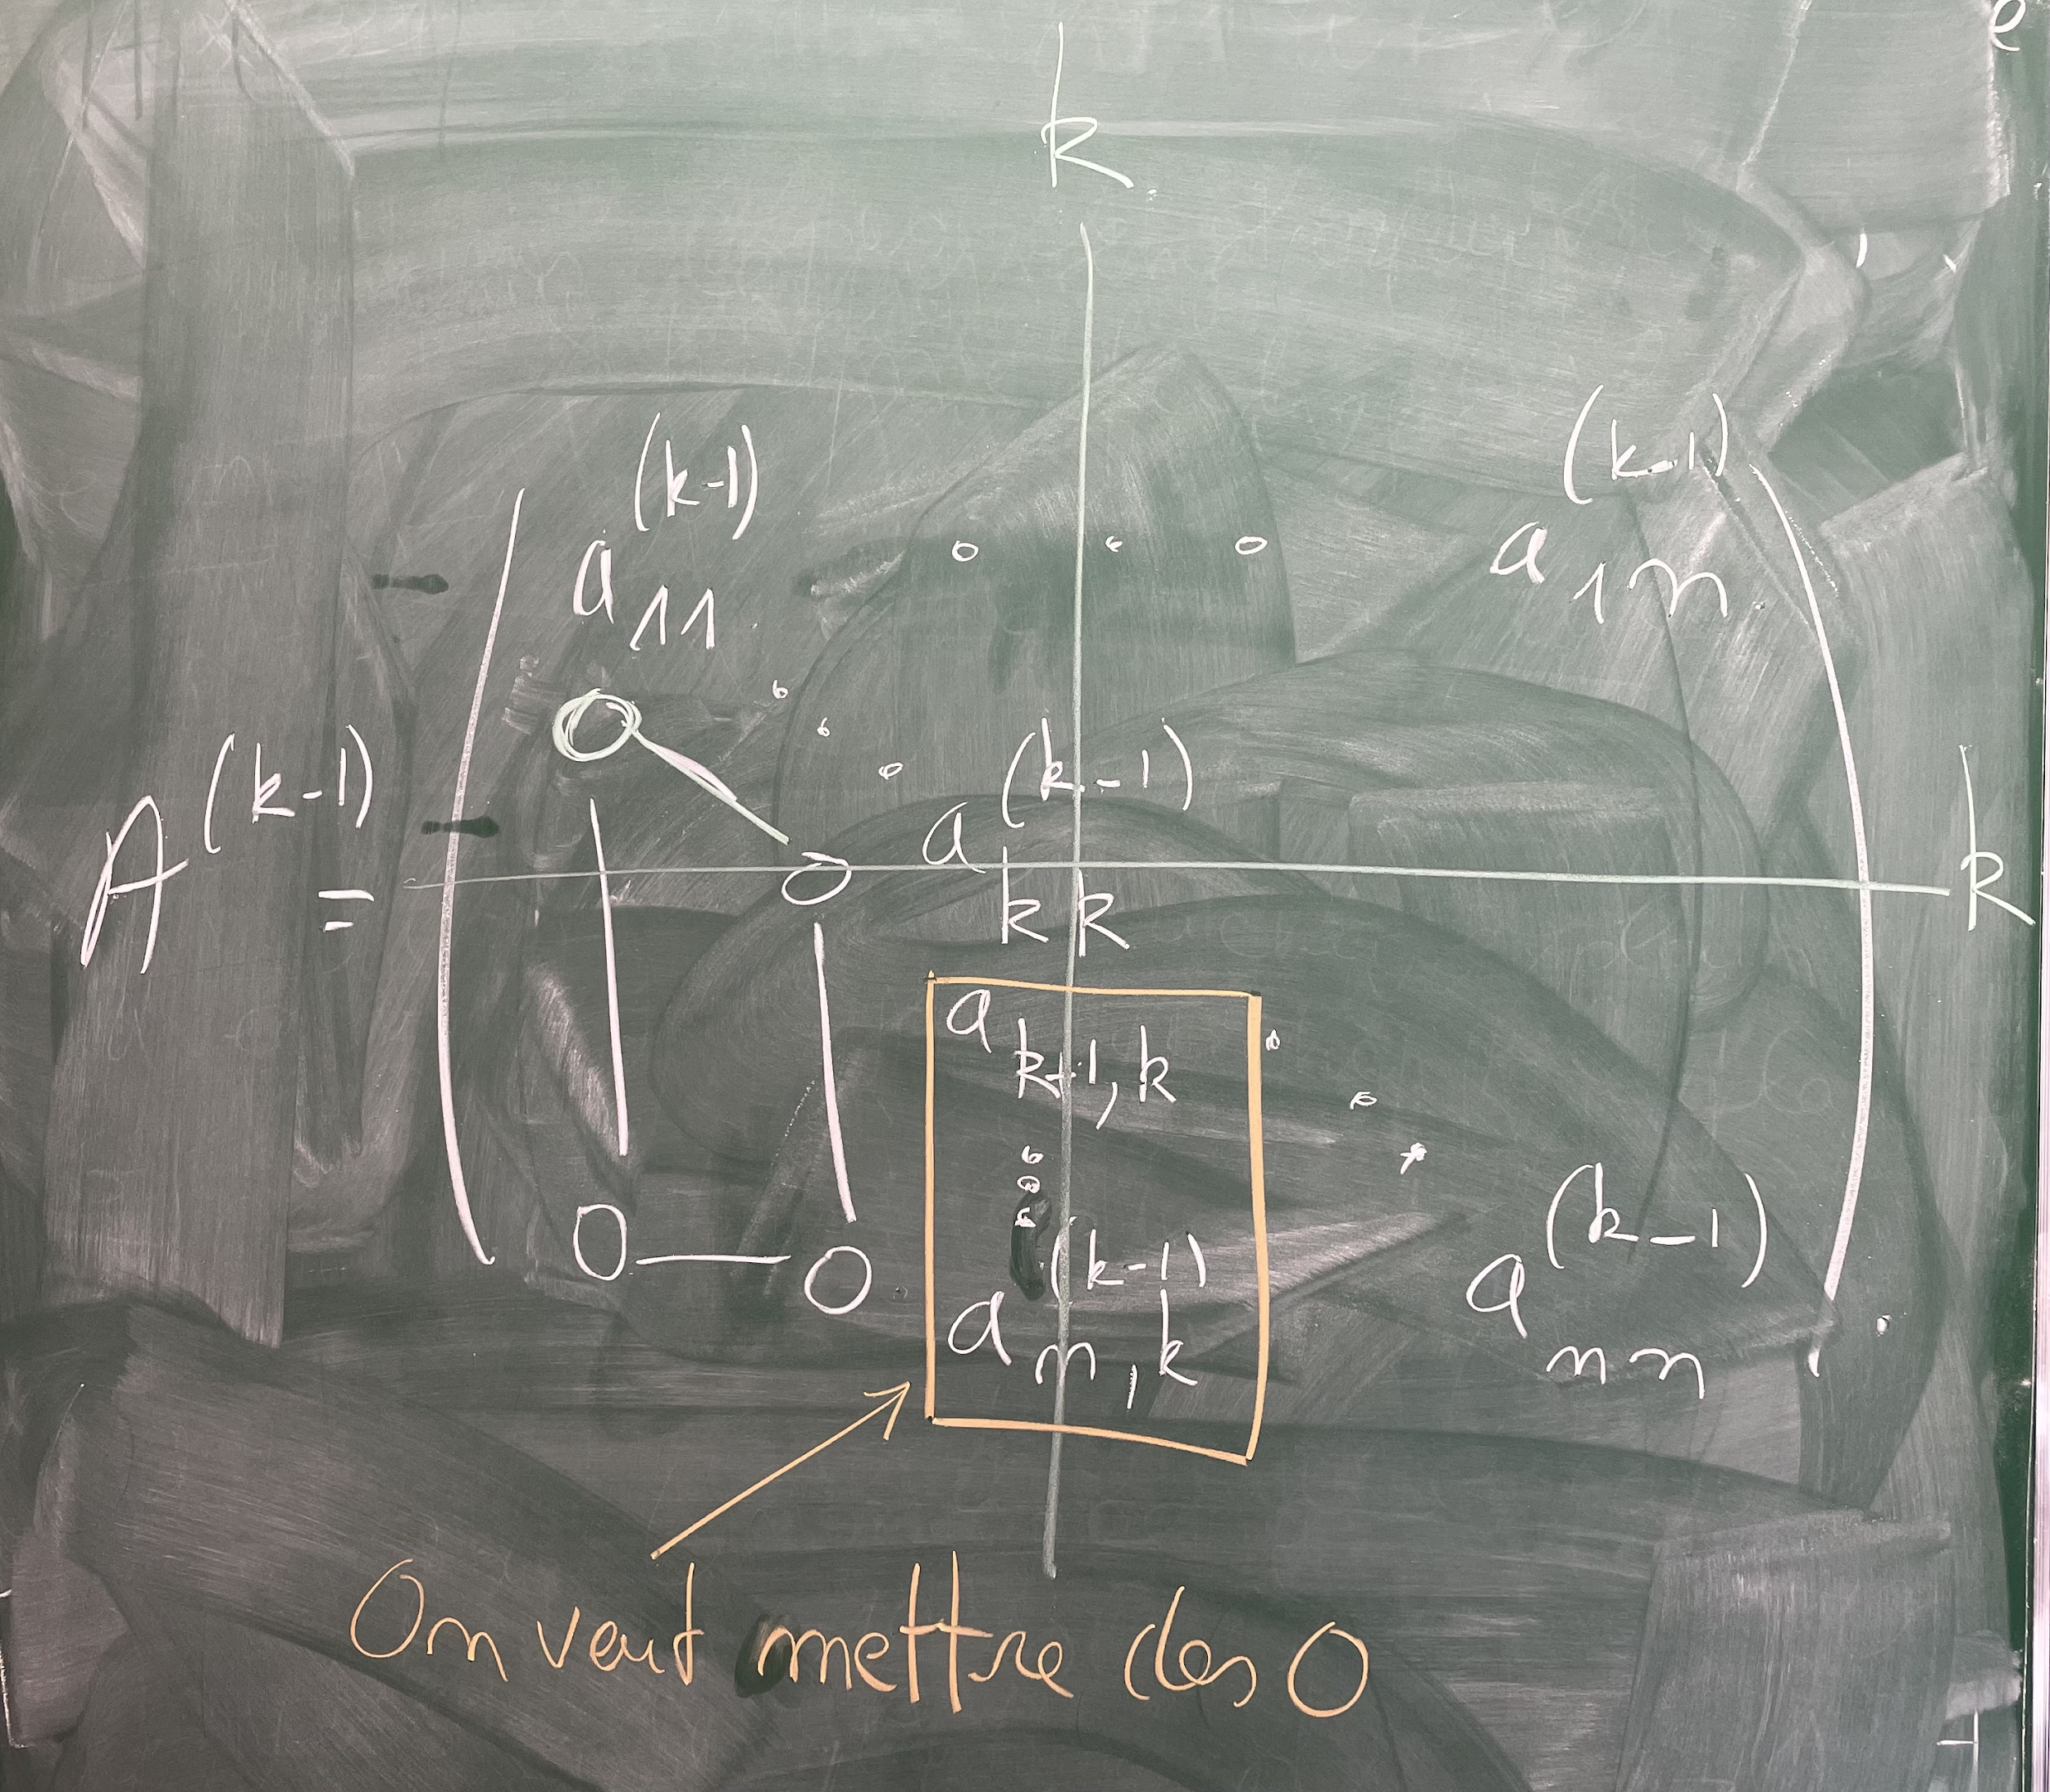 k
a₁₁^(k-1) . . . a₁ₙ^(k-1)
0 . . .
A^(k-1) = 0 a_kk^(k-1) k
a_k+1,k . . .
⋮
0 — 0 a_n,k^(k-1) a_nn^(k-1)
On veut mettre des 0